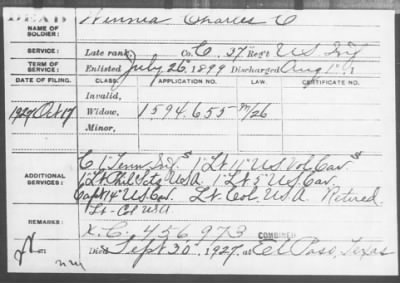 DEAD
NAME OF SOLDIER: Charles C
SERVICE: Late rank, Co. C, 37 Reg't U S Inf
TERM OF SERVICE: Enlisted July 26 1899 Discharged Aug 1
DATE OF FILING. CLASS. APPLICATION NO. LAW. CERTIFICATE NO.
Invalid,
1927 Oct 17 Widow, 1594.655 m/26
Minor,
C 1" Tenn Inf. 1" Lt 11" U.S. Vol. Cav.
ADDITIONAL SERVICES: 1" Lt Phil U.S.A 1" Lt 5" U.S. Cav.
Capt 14" U.S. Cav. Lt. Col. U.S.A. Retired.
Lt- Col U S A
REMARKS: X.C. 456973 COMBINED
Died Sept 30", 1927, at El Paso, Texas